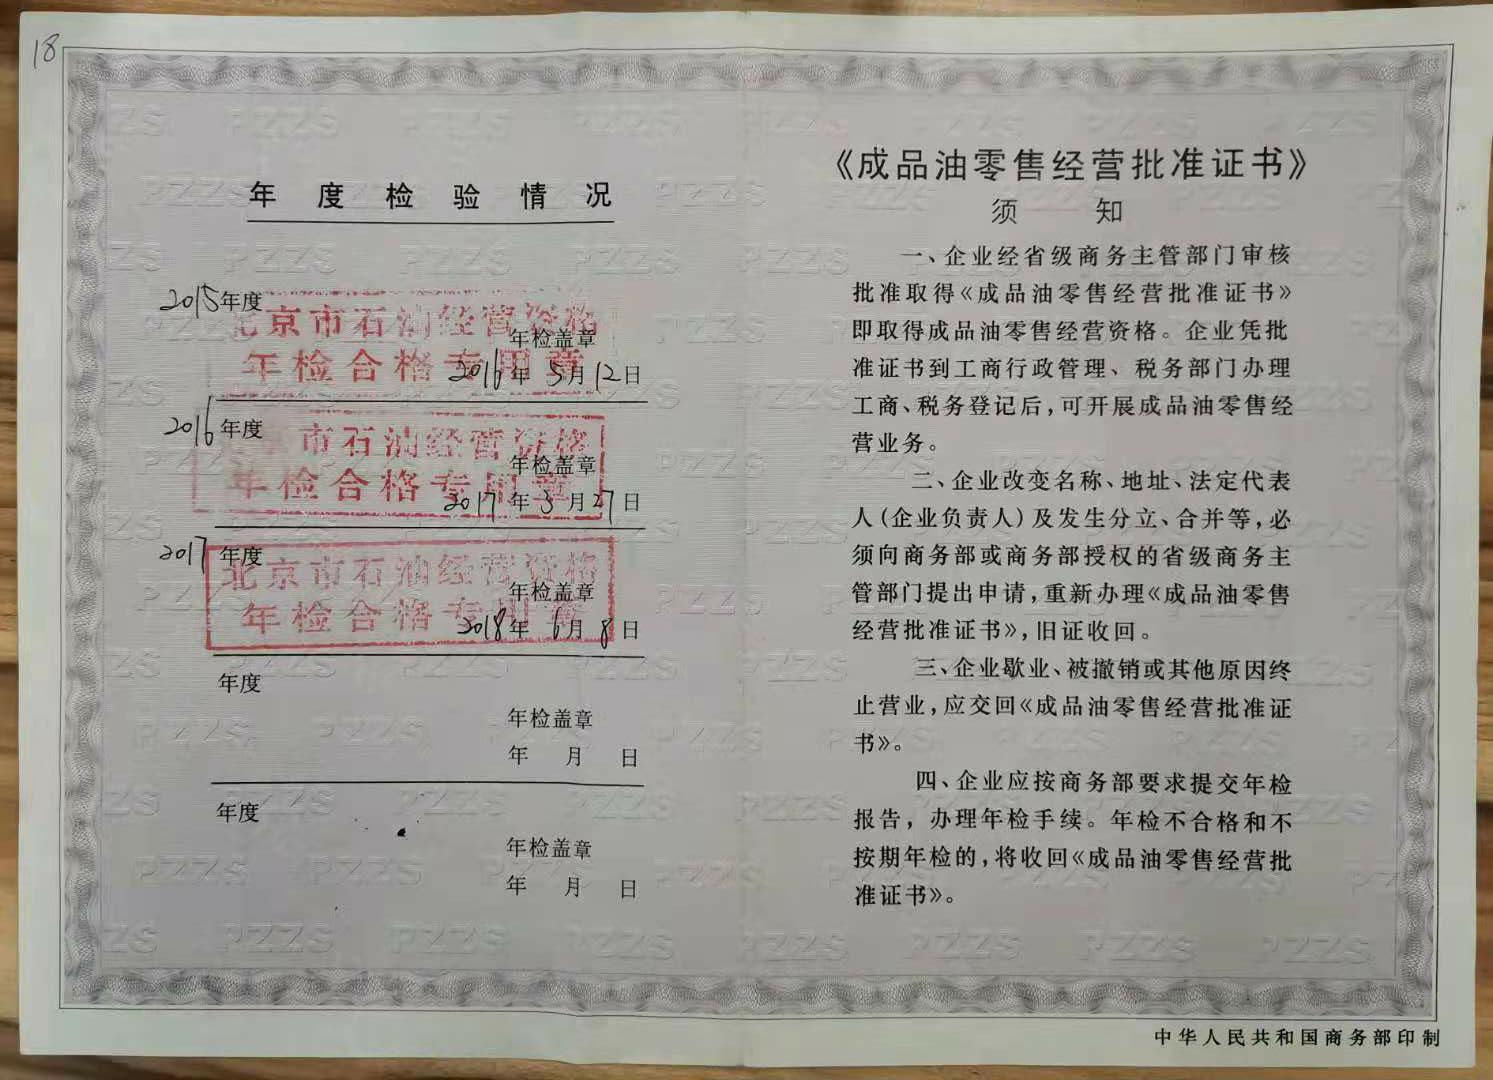 18
年度检验情况
2015年度
北京市石油经营资格
年检合格专用章
年检盖章
2016年5月12日
2016年度
京市石油经营资格
年检合格专用章
年检盖章
2017年3月27日
2017年度
北京市石油经营资格
年检合格专用章
年检盖章
2018年6月8日
年度
年检盖章
年 月 日
年度
年检盖章
年 月 日
《成品油零售经营批准证书》
须 知
一、企业经省级商务主管部门审核
批准取得《成品油零售经营批准证书》
即取得成品油零售经营资格。企业凭批
准证书到工商行政管理、税务部门办理
工商、税务登记后，可开展成品油零售经
营业务。
二、企业改变名称、地址、法定代表
人（企业负责人）及发生分立、合并等，必
须向商务部或商务部授权的省级商务主
管部门提出申请，重新办理《成品油零售
经营批准证书》，旧证收回。
三、企业歇业、被撤销或其他原因终
止营业，应交回《成品油零售经营批准证
书》。
四、企业应按商务部要求提交年检
报告，办理年检手续。年检不合格和不
按期年检的，将收回《成品油零售经营批
准证书》。
中华人民共和国商务部印制
PZZS